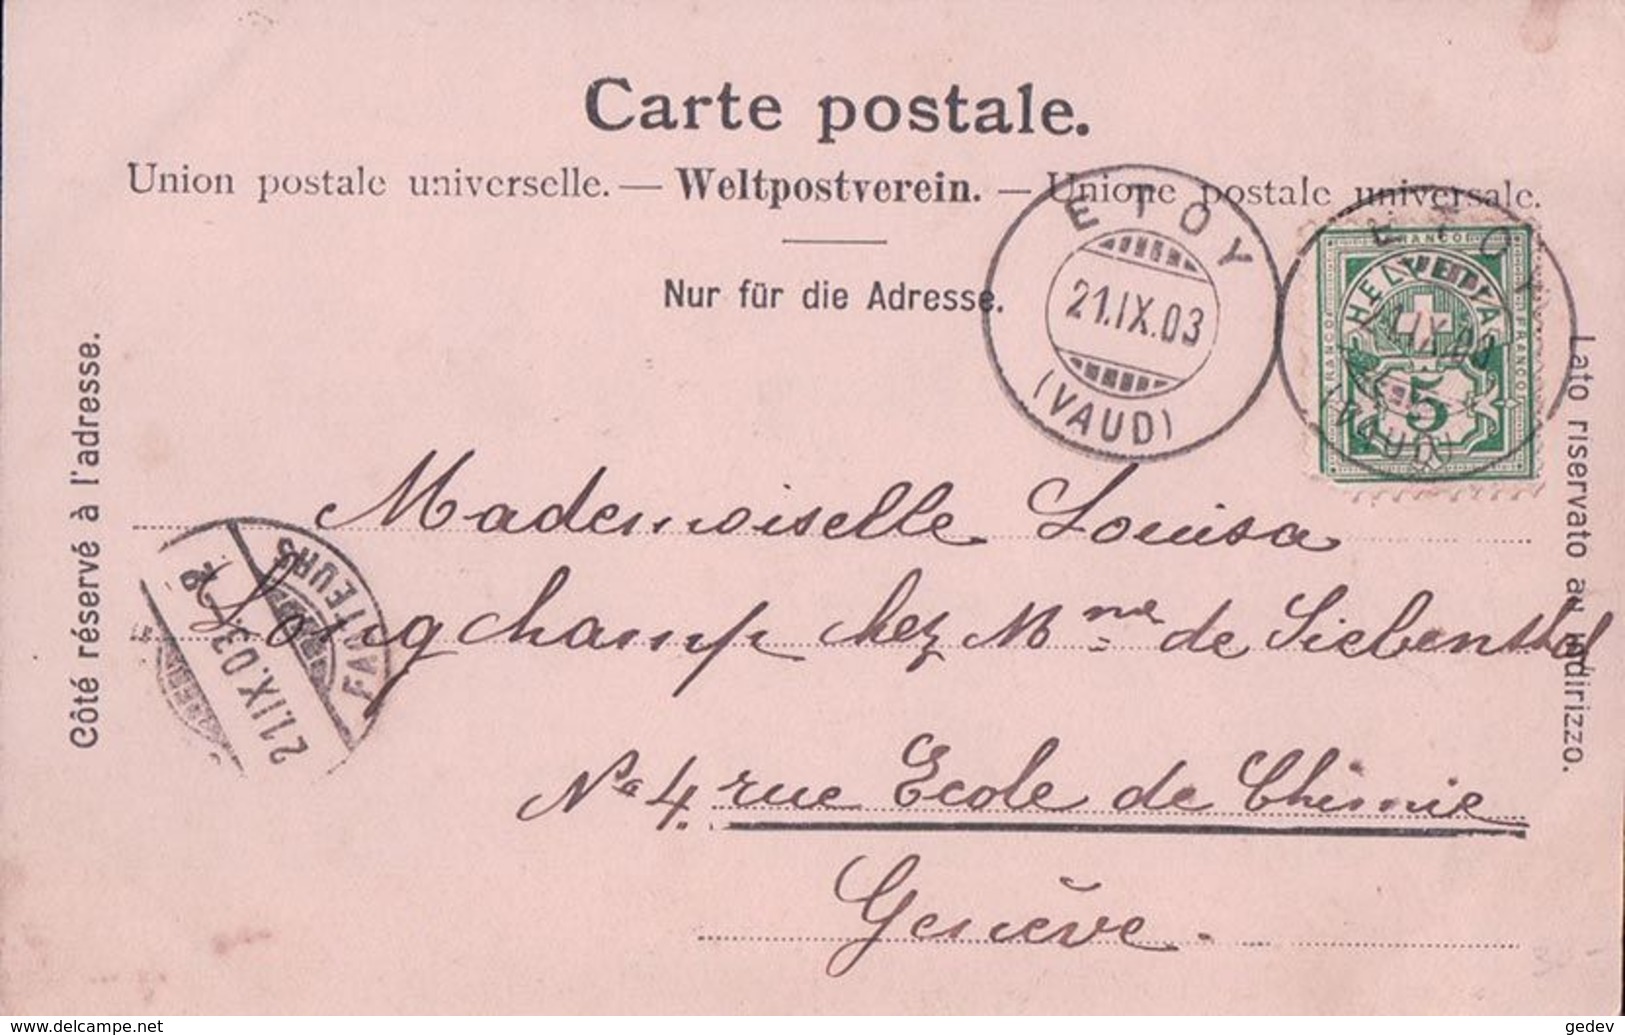 Carte postale.
Union postale universelle. — Weltpostverein. — Unione postale universale.
Nur für die Adresse.
Côté réservé à l'adresse.
Lato riservato all'indirizzo.
ETOY
21.IX.03
(VAUD)
ETOY
(VAUD)
FRANCO
HELVETIA
FRANCO
5
Mademoiselle Louisa
Longchamp chez Mme de Siebenthal
No 4. rue Ecole de Chimie
Genève.
FACTEURS
21.IX.03.
gedev